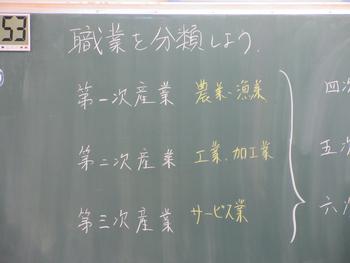 53
職業を分類しよう.
第一次産業 農業、漁業
第二次産業 工業、加工業
第三次産業 サービス業
四次
五次
六次